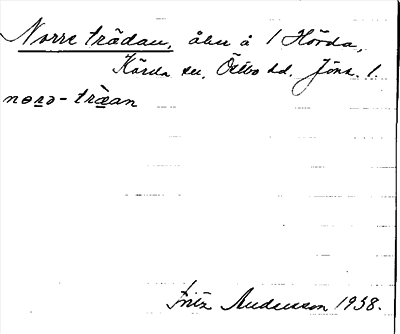 Norre trädan, åker å 1 Hörda,
Kärda sn, Östbo hd. Jönk. l.
nɷrə - träan
Fritz Andersson 1938.